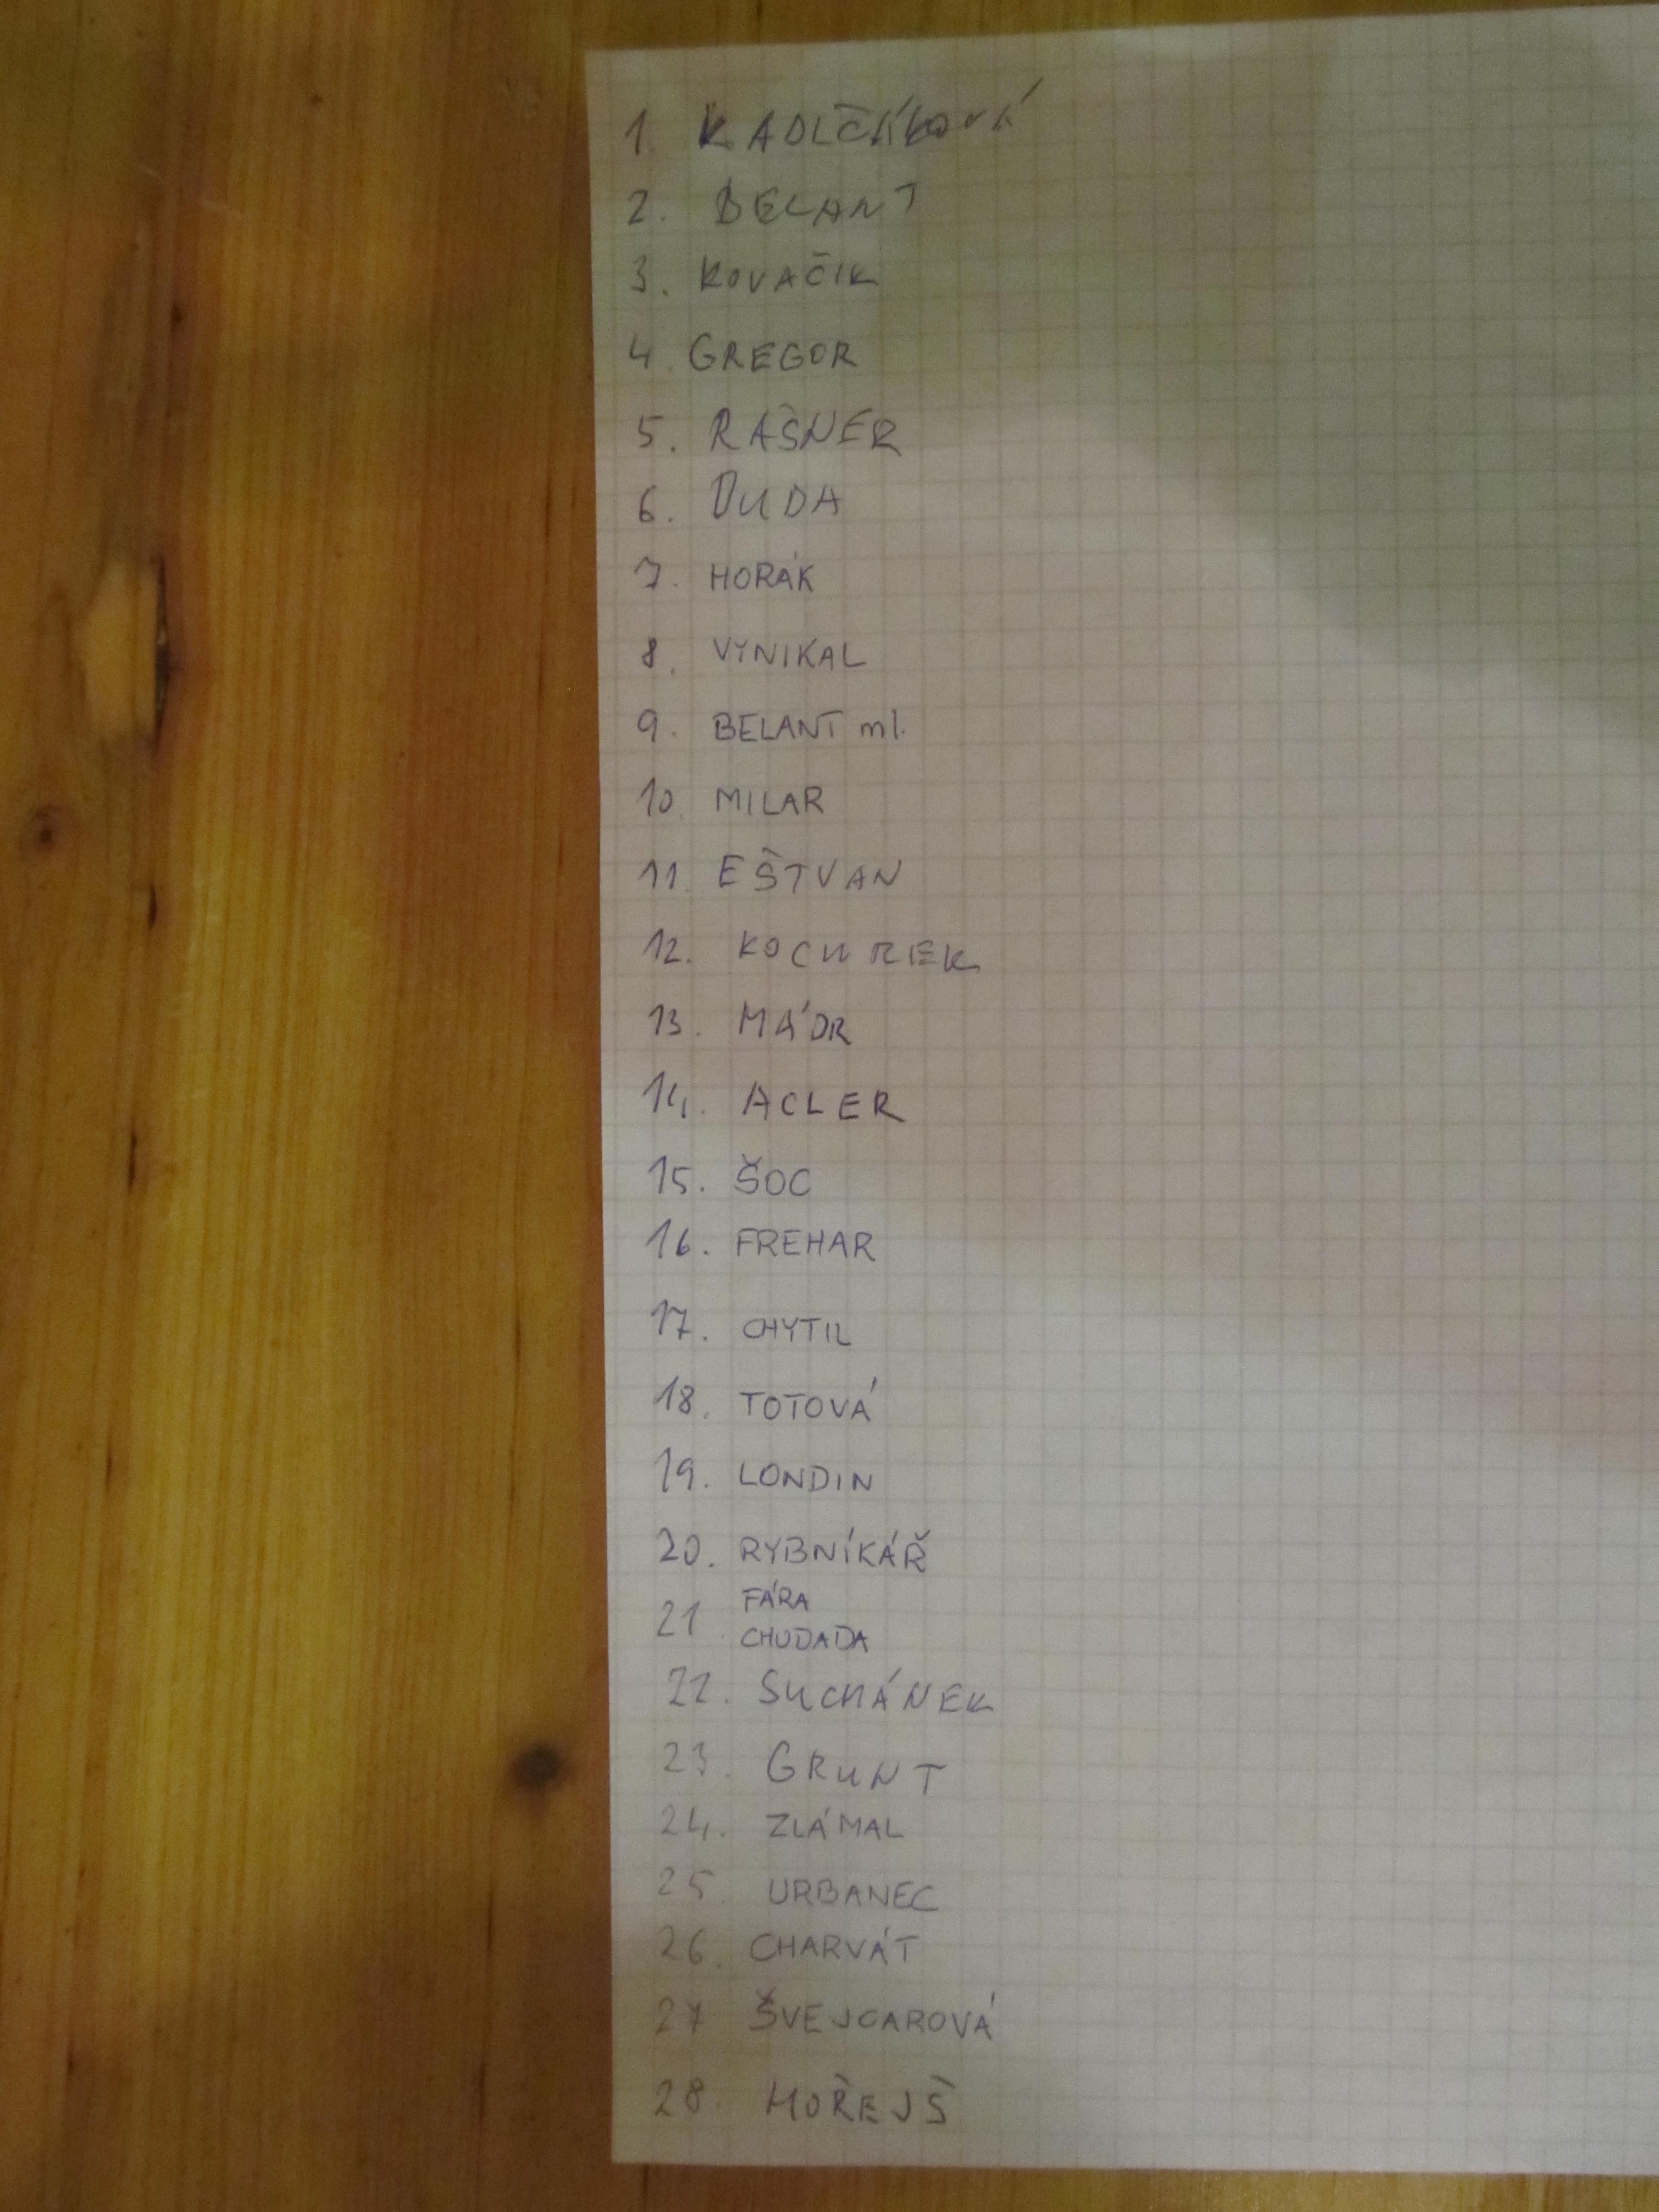 1. KADLČÁKOVÁ
2. BELANT
3. KOVAČIK
4. GREGOR
5. RAŠNER
6. DUDA
7. HORÁK
8. VYNIKAL
9. BELANT ml.
10. MILAR
11. EŠTVAN
12. KOCUREK
13. MÁDR
14. ACLER
15. ŠOC
16. FREHAR
17. CHYTIL
18. TOTOVÁ
19. LONDIN
20. RYBNÍKÁŘ
21. FÁRA
CHUDADA
22. SUCHÁNEK
23. GRUNT
24. ZLÁMAL
25. URBANEC
26. CHARVÁT
27 ŠVEJCAROVÁ
28. MOŘEJŠ